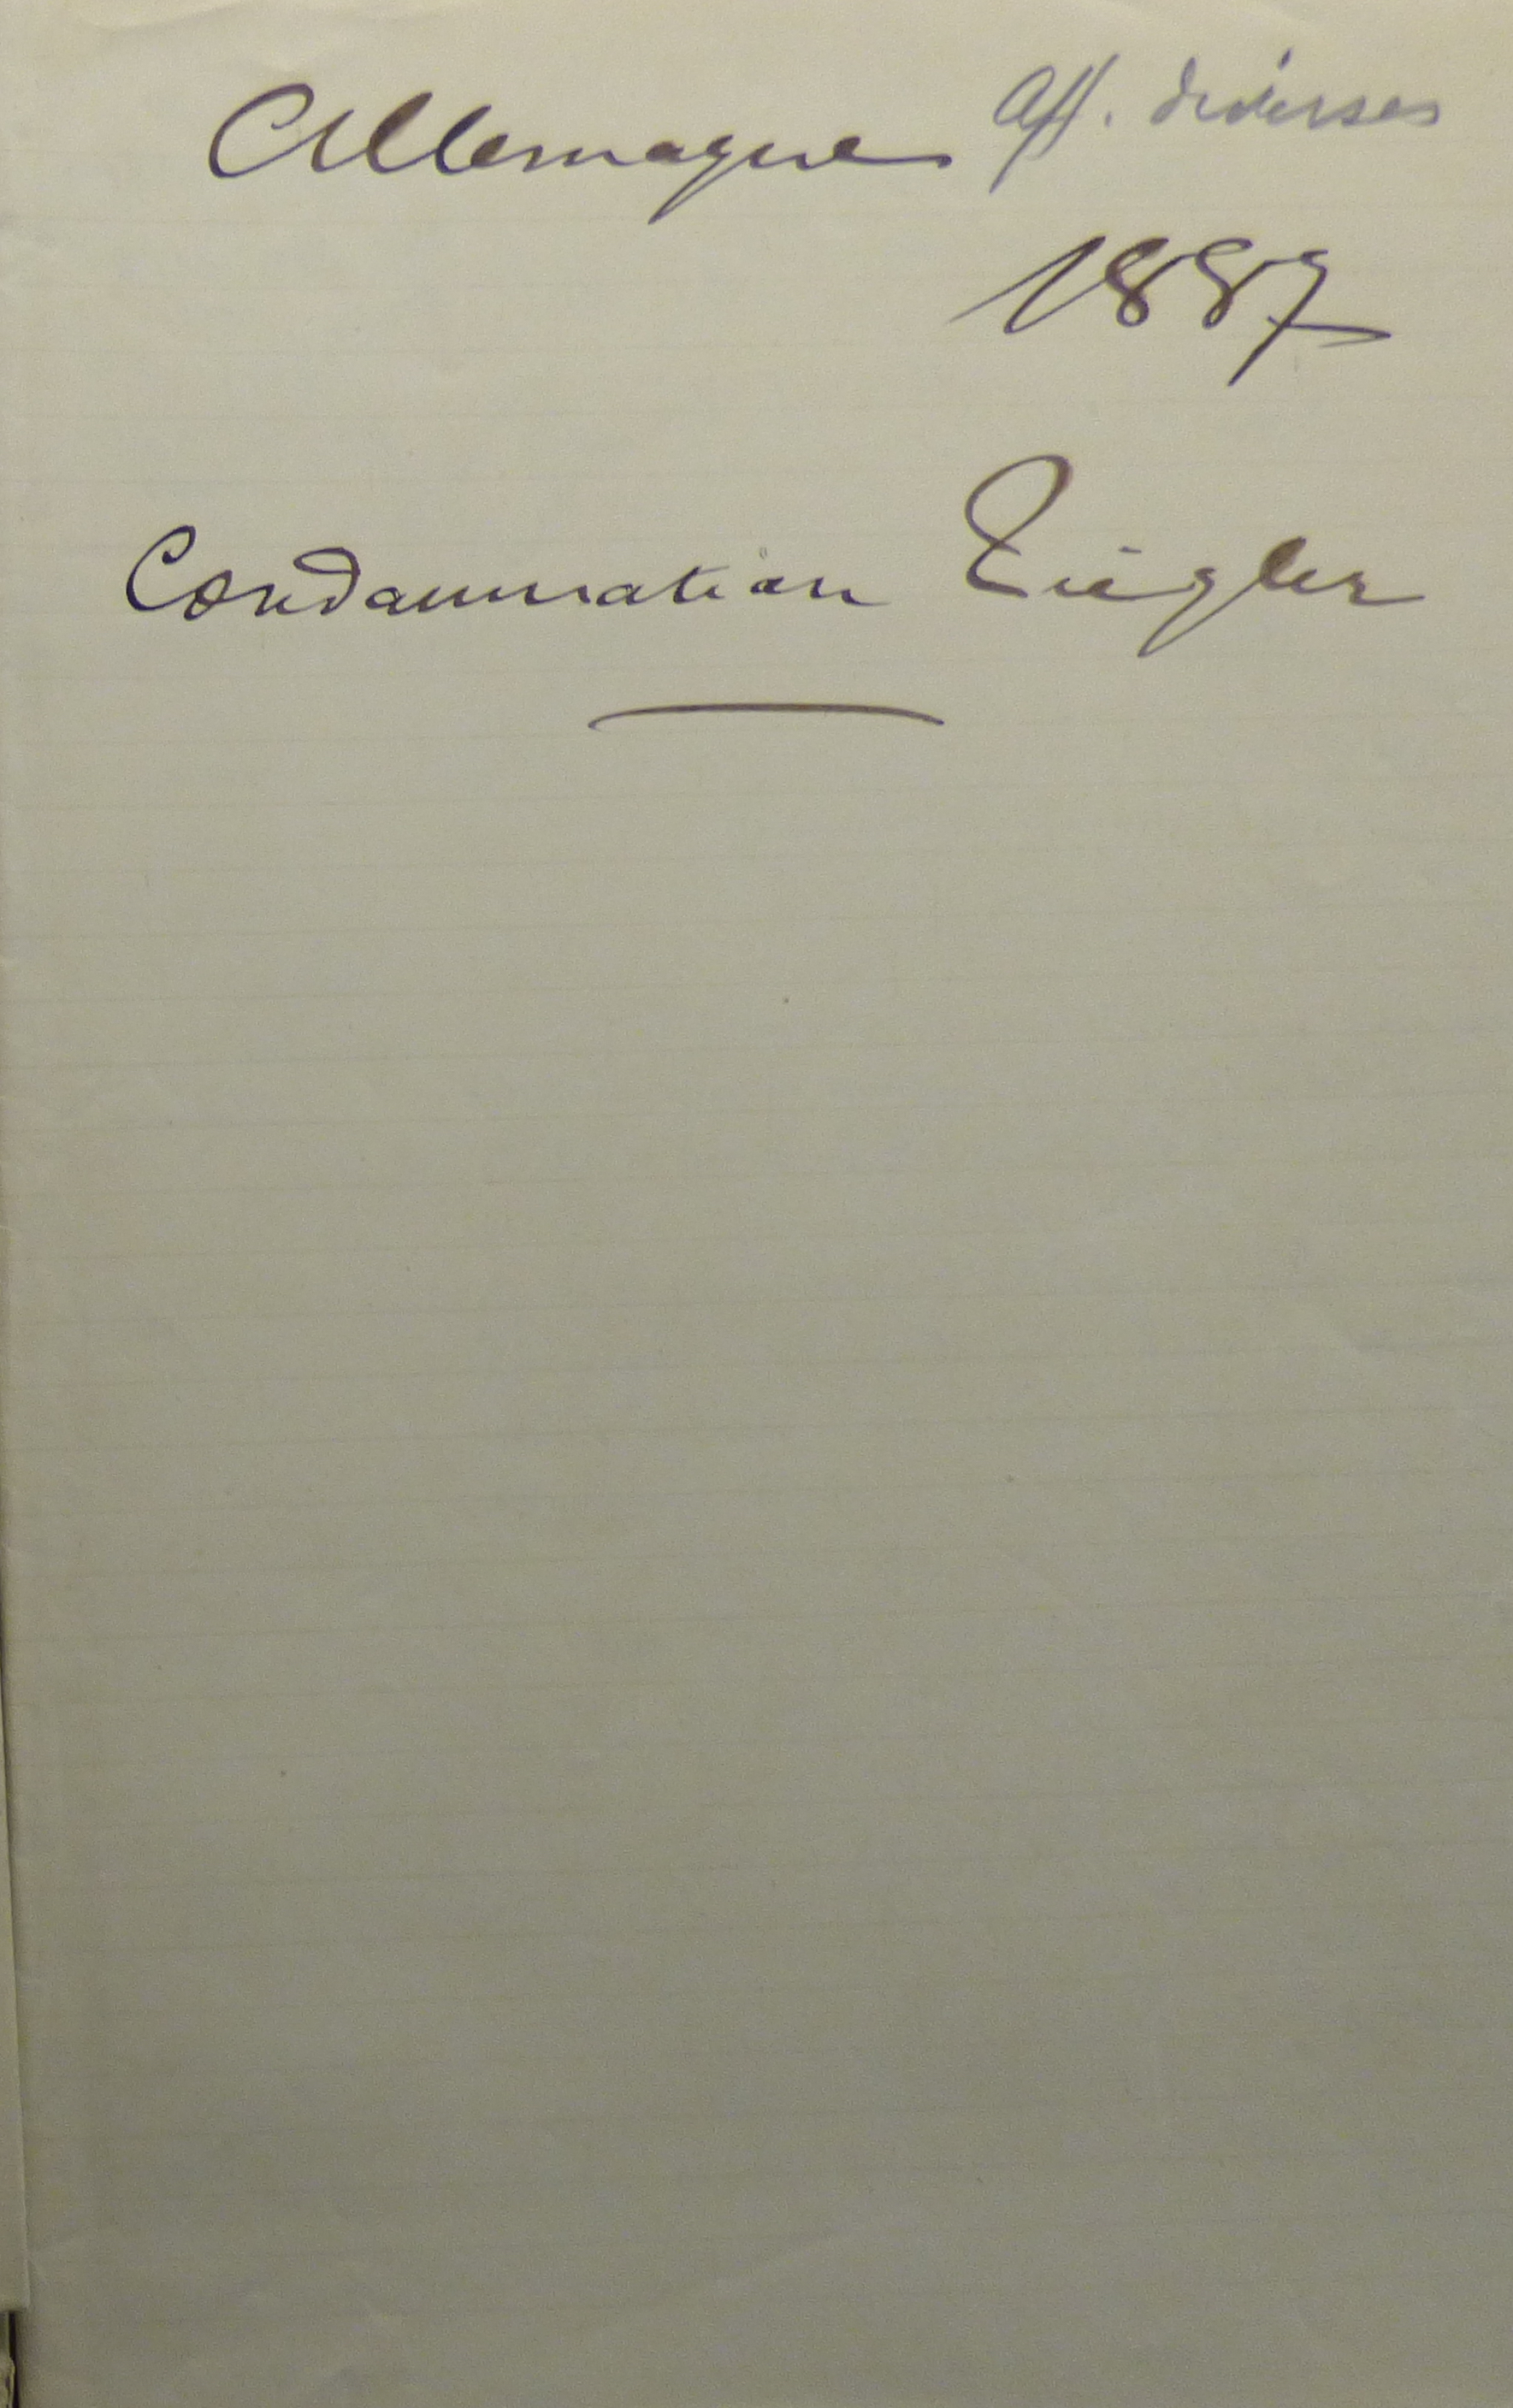 Allemagne Aff. diverses
1887
Condamnation Ziegler